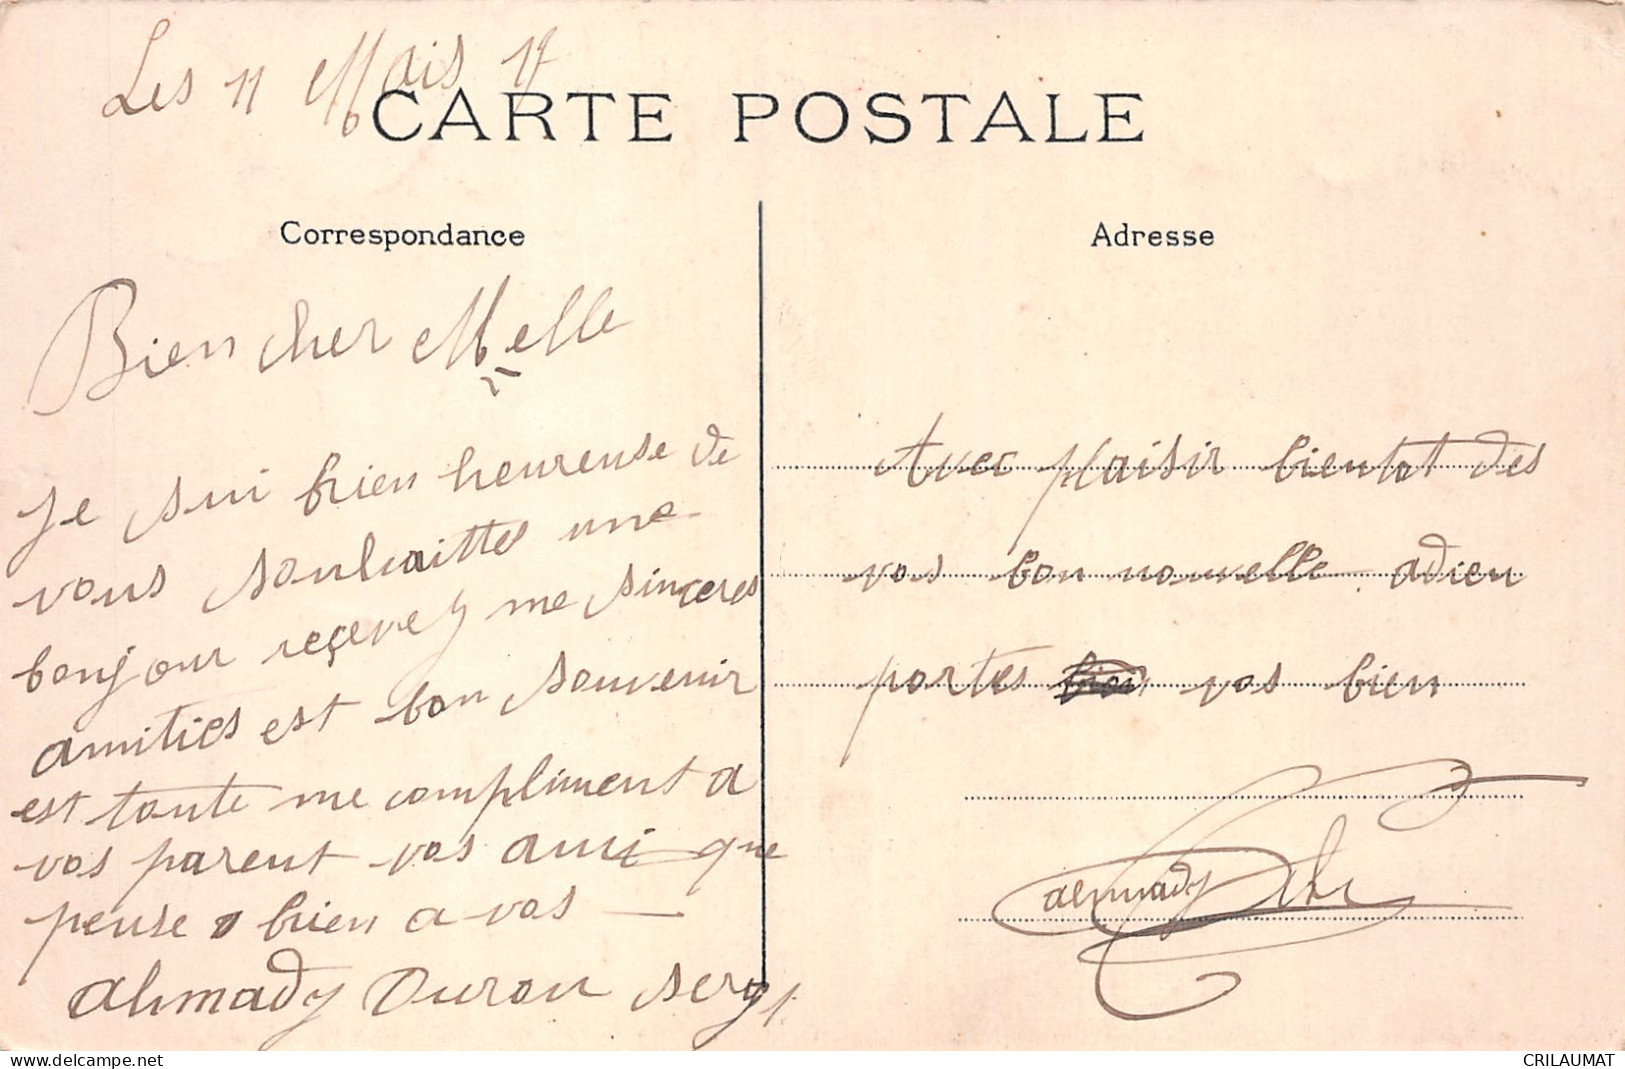 Les 11 Mais 17
CARTE POSTALE
Correspondance
Bien cher Melle
Je sui bien heureuse de
vous souhaittes une
bonjour reçevez me sinceres
amities est bon souvenir
est toute me compliment a
vos parent vos ami que
pense bien a vos
Ahmady Ouron serg
Adresse
Avec plaisir bientot des
vos bon nouvelle adieu
portes vos bien
ahmady
www.delcampe.net
CRILAUMAT